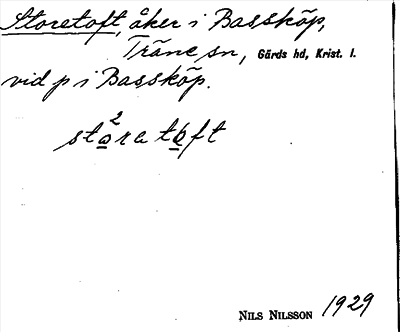 Storetoft, åker i Bassköp,
Träne sn, Gärds hd, Krist. l.
vid p i Bassköp.
2
stora toft
NILS NILSSON 1929